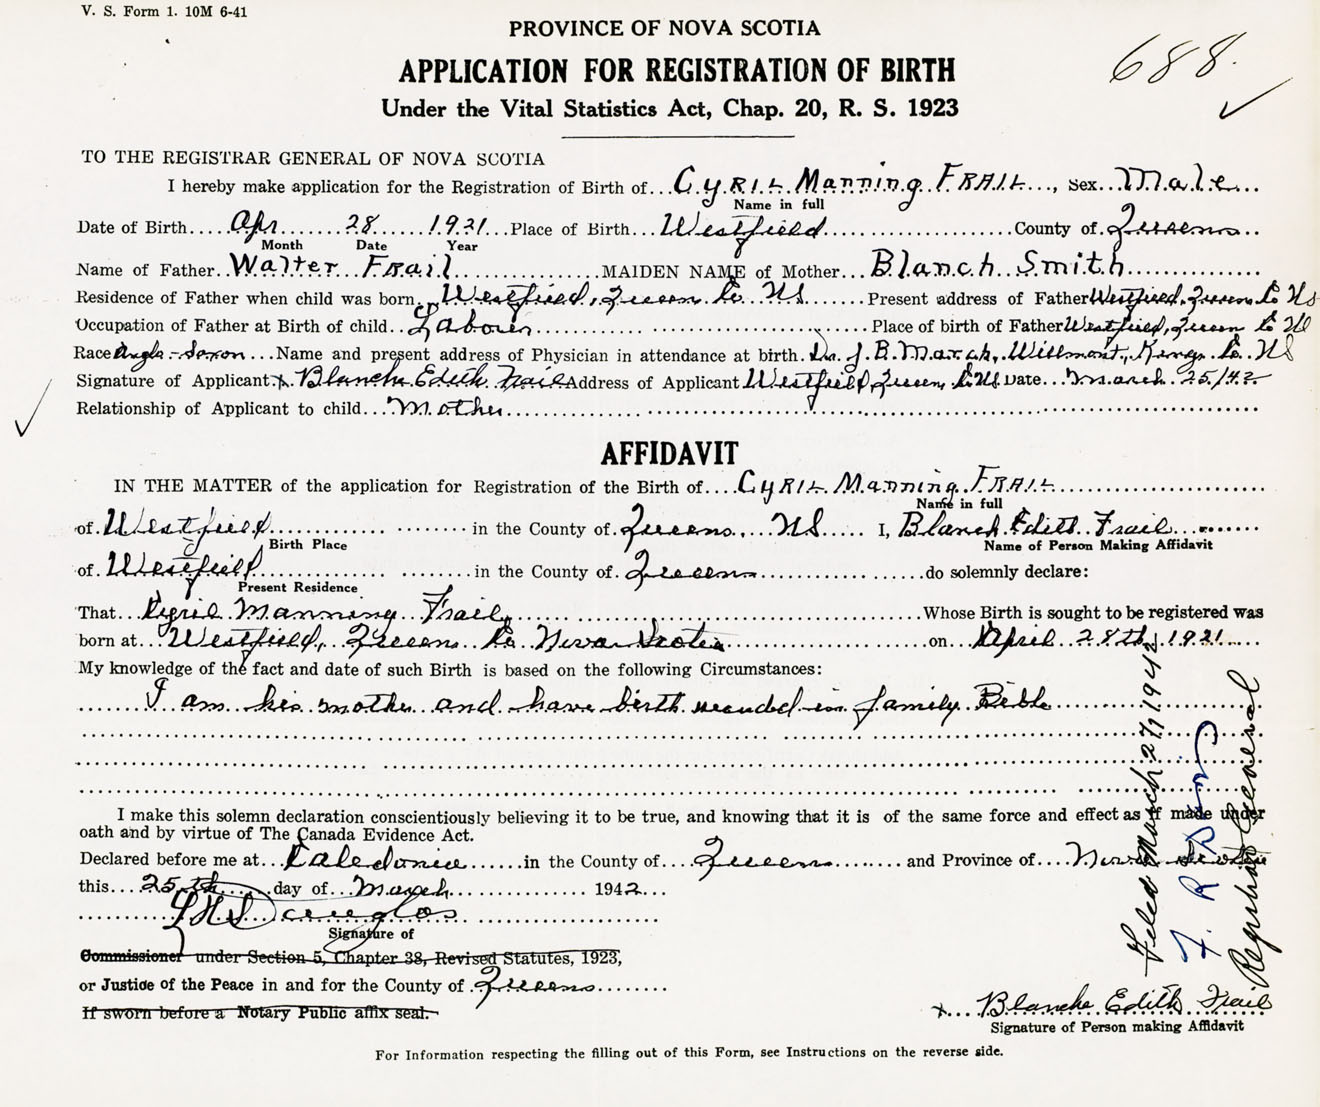 V. S. Form 1. 10M 6-41
PROVINCE OF NOVA SCOTIA
688.
APPLICATION FOR REGISTRATION OF BIRTH
Under the Vital Statistics Act, Chap. 20, R. S. 1923
TO THE REGISTRAR GENERAL OF NOVA SCOTIA
I hereby make application for the Registration of Birth of... Cyril Manning Frail..., Sex.. Male...
Name in full
Date of Birth..... Apr ...... 28 ...... 1921 ... Place of Birth.... Westfield ........ County of. Queens...
Month Date Year
Name of Father.. Walter Frail ........ MAIDEN NAME of Mother... Blanch Smith ........
Residence of Father when child was born. Westfield, Queens Co NS ....... Present address of Father Westfield, Queens Co NS
Occupation of Father at Birth of child.. Labourer ........ Place of birth of Father Westfield, Queens Co NS
Race Anglo-Saxon ... Name and present address of Physician in attendance at birth. Dr. J. B. March, Willmont, Kings Co. NS
Signature of Applicant x Blanche Edith Frail Address of Applicant Westfield Queens Co NS Date... March 25/42
Relationship of Applicant to child... Mother ........
AFFIDAVIT
IN THE MATTER of the application for Registration of the Birth of.... Cyril Manning Frail ........
Name in full
of. Westfield ........ in the County of. Queens, ... NS .... I, Blanch Edith Frail ........
Birth Place Name of Person Making Affidavit
of. Westfield ........ in the County of. Queens ........ do solemnly declare:
Present Residence
That... Cyril Manning Frail ........ Whose Birth is sought to be registered was
born at... Westfield, Queens Co Nova Scotia ........ on... April 28th 1921 ....
My knowledge of the fact and date of such Birth is based on the following Circumstances:
I am his mother and have birth recorded in family Bible
I make this solemn declaration conscientiously believing it to be true, and knowing that it is of the same force and effect as if made under
oath and by virtue of The Canada Evidence Act.
Declared before me at... Caledonia ...... in the County of.... Queens ........ and Province of.... Nova Scotia
this.... 25th .... day of... March ........ 1942...
Douglas
Signature of
Commissioner under Section 5, Chapter 38, Revised Statutes, 1923,
or Justice of the Peace in and for the County of. Queens ........
If sworn before a Notary Public affix seal.
x... Blanche Edith Frail
Signature of Person making Affidavit
For Information respecting the filling out of this Form, see Instructions on the reverse side.
Filed March 27, 1942
Registrar General